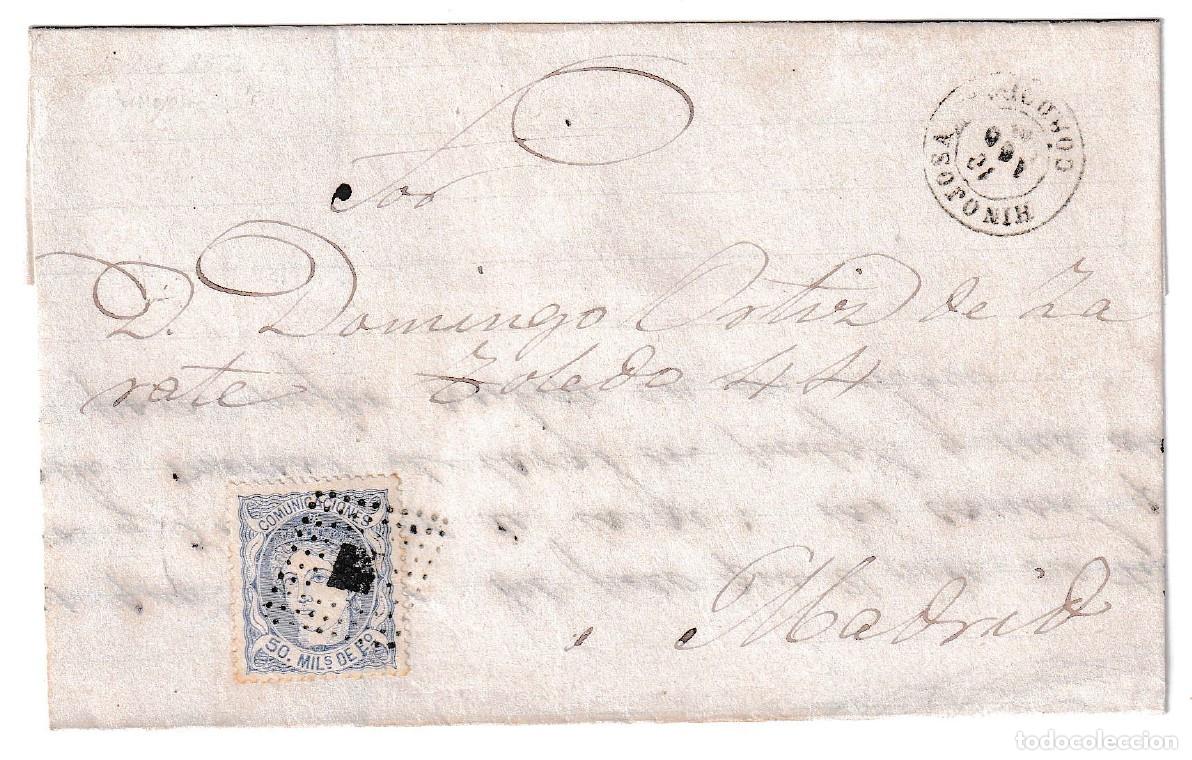 Sor
D. Domingo Ortiz de Za
rate Toledo 44
Madrid
HINOJOSA
CORDOBA
COMUNICACIONES
50. MILS DE Eº
todocoleccion